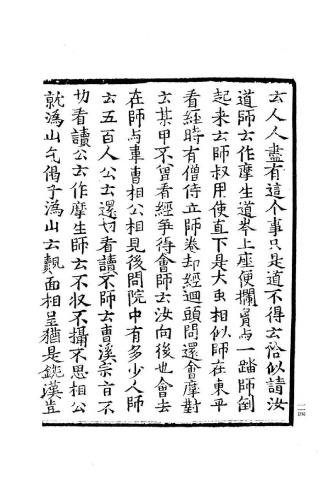 玄人人盡有這个事只是道不得玄恰似請汝
道師玄作摩生道岑上座便攔胷与一踏師倒
起来玄師叔用使直下是大虫相似師在東平
看經時有僧侍立師卷却經迴頭問還會摩對
玄某甲不曽看經爭得會師玄汝向後也會去
在師与韋曹相公相見後問院中有多少人師
玄五百人公玄還切看讀不師玄曹溪宗旨不
切看讀公玄作摩生師玄不收不攝不思相公
就溈山乞偈子溈山玄覿面相呈猶是鈍漢豈